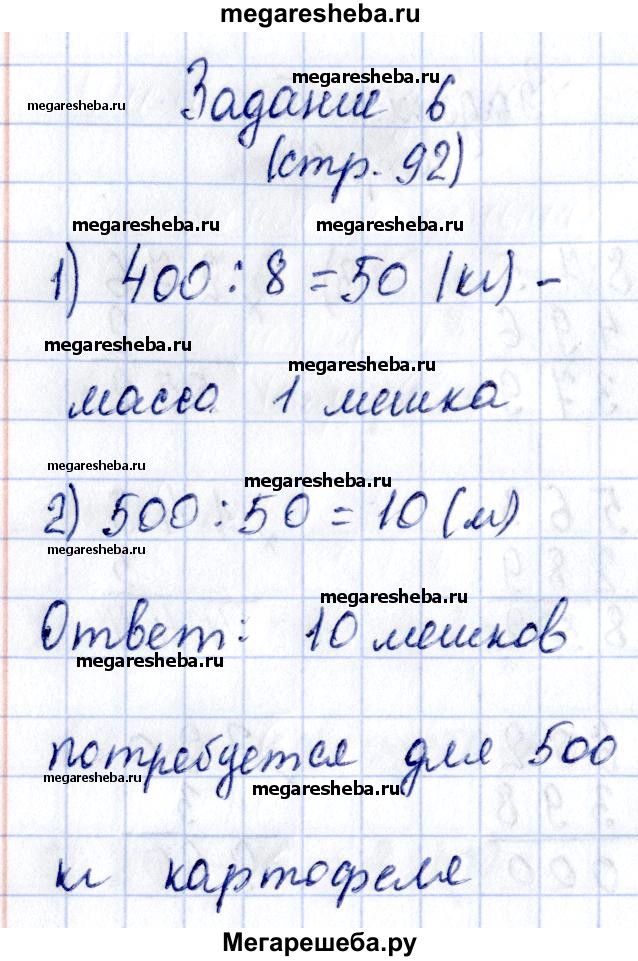 megaresheba.ru
Задание 6
megaresheba.ru
megaresheba.ru
(стр. 92)
megaresheba.ru megaresheba.ru
1) 400 : 8 = 50 (кг) -
megaresheba.ru
megaresheba.ru
масса 1 мешка
megaresheba.ru
megaresheba.ru
2) 500 : 50 = 10 (м)
megaresheba.ru
megaresheba.ru
Ответ: 10 мешков
megaresheba.ru
потребуется для 500
megaresheba.ru
megaresheba.ru
кг картофеля
Мегарешеба.ру